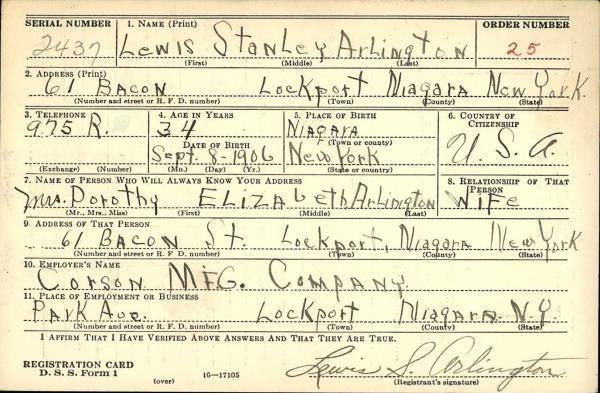 SERIAL NUMBER 1. NAME (Print) ORDER NUMBER
2437 Lewis Stanley Arlington 25
(First) (Middle) (Last)
2. ADDRESS (Print)
61 Bacon Lockport Niagara New York.
(Number and street or R. F. D. number) (Town) (County) (State)
3. TELEPHONE 4. AGE IN YEARS 5. PLACE OF BIRTH 6. COUNTRY OF CITIZENSHIP
975 R. 34 Niagara
(Town or county)
DATE OF BIRTH
Sept. 8-1906 New York U. S. A.
(Exchange) (Number) (Mo.) (Day) (Yr.) (State or country)
7. NAME OF PERSON WHO WILL ALWAYS KNOW YOUR ADDRESS 8. RELATIONSHIP OF THAT PERSON
Mrs. Dorothy Elizabeth Arlington Wife
(Mr., Mrs., Miss) (First) (Middle) (Last)
9 ADDRESS OF THAT PERSON
61 Bacon St. Lockport, Niagara New York
(Number and street or R. F. D. number) (Town) (County) (State)
10. EMPLOYER'S NAME
Corson MFG. Company.
11. PLACE OF EMPLOYMENT OR BUSINESS
Park Ave. Lockport Niagara N.Y.
(Number and street or R. F. D. number) (Town) (County) (State)
I AFFIRM THAT I HAVE VERIFIED ABOVE ANSWERS AND THAT THEY ARE TRUE.
REGISTRATION CARD Lewis S. Arlington
D. S. S. Form 1 (over) 16—17105 (Registrant's signature)